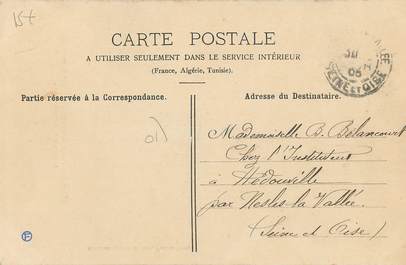 15+
CARTE POSTALE
A UTILISER SEULEMENT DANS LE SERVICE INTÉRIEUR
(France, Algérie, Tunisie).
Partie réservée à la Correspondance.
Adresse du Destinataire.
SEINE ET OISE
Mademoiselle B. Belancourt
Chez l'Instituteur
à Hédouville
par Nesles-la Vallée.
(Seine et Oise)